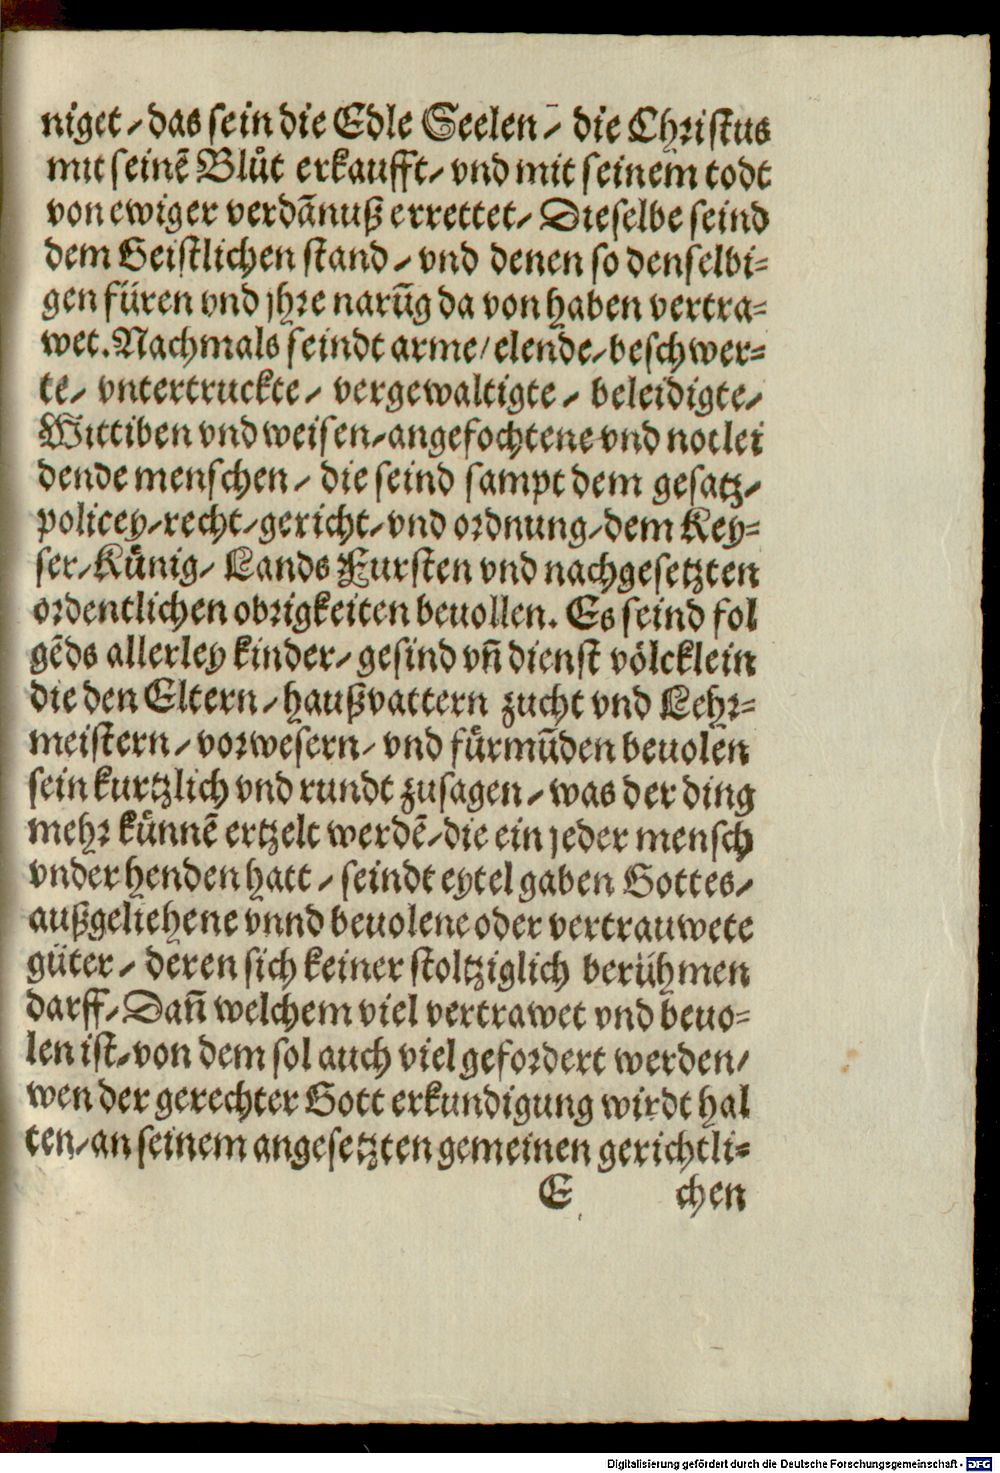 niget / das sein die Edle Seelen / die Christus
mit seinẽ Blůt erkaufft / vnd mit seinem todt
von ewiger verdãnuß errettet / Dieselbe seind
dem Geistlichen stand / vnd denen so denselbi=
gen füren vnd jhre narũg da von haben vertra=
wet. Nachmals seindt arme / elende / beschwer=
te / vntertruckte / vergewaltigte / beleidigte /
Wittiben vnd weisen / angefochtene vnd notlei
dende menschen / die seind sampt dem gesatz /
policey / recht / gericht / vnd ordnung / dem Key=
ser / Künig / Lands Fursten vnd nachgesetzten
ordentlichen obrigkeiten beuollen. Es seind fol
gẽds allerley kinder / gesind vñ dienst völcklein
die den Eltern / haußvattern zucht vnd Lehr=
meistern / vorwesern / vnd fürmũden beuolen
sein kurtzlich vnd rundt zusagen / was der ding
mehr künnẽ ertzelt werdẽ / die ein jeder mensch
vnder henden hatt / seindt eytel gaben Gottes /
außgeliehene vnnd beuolene oder vertrauwete
güter / deren sich keiner stoltziglich berühmen
darff / Dañ welchem viel vertrawet vnd beuo=
len ist / von dem sol auch viel gefordert werden /
wen der gerechter Gott erkundigung wirdt hal
ten / an seinem angesetzten gemeinen gerichtli=
E chen
Digitalisierung gefördert durch die Deutsche Forschungsgemeinschaft - DFG